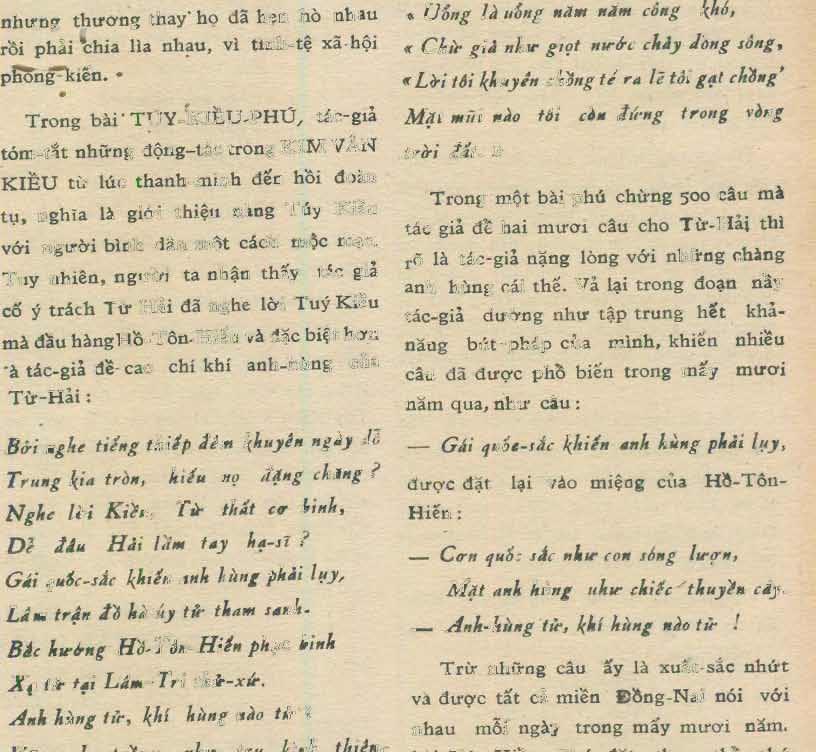 nhưng thương thay họ đã hẹn hò nhau
rồi phải chia lìa nhau, vì tình-tệ xã-hội
phong-kiến.
Trong bài TÚY-KIỀU-PHÚ, tác-giả
tóm-tắt những động-tác trong KIM VÂN
KIỀU từ lúc thanh minh đến hồi đoàn
tụ, nghĩa là giới thiệu nàng Túy Kiều
với người bình dân một cách mộc mạc.
Tuy nhiên, người ta nhận thấy tác giả
cố ý trách Từ Hải đã nghe lời Tuý Kiều
mà đầu hàng Hồ Tôn-Hiến và đặc biệt hơn
là tác-giả đề cao chí khí anh-hùng của
Từ-Hải :
Bởi nghe tiếng thiếp đêm khuyên ngày dỗ
Trung kia tròn, hiếu nọ đặng chăng ?
Nghe lời Kiều, Từ thất cơ binh,
Dễ đâu Hải lầm tay hạ-sĩ ?
Gái quốc-sắc khiến anh hùng phải lụy,
Lâm trận đồ hà úy tử tham sanh.
Bắc hướng Hồ-Tôn Hiến phục binh
Xạ tử tại Lâm-Tri thử-xứ.
Anh hùng tử, khí hùng nào tử !
« Uổng là uổng năm năm công khó,
« Chừ giả như giọt nước chảy dòng sông,
« Lời tôi khuyên chồng té ra lẽ tôi gạt chồng
Mặt mũi nào tôi còn đứng trong vòng
trời đất. »
Trong một bài phú chừng 500 câu mà
tác giả đề hai mươi câu cho Từ-Hải thì
rõ là tác-giả nặng lòng với những chàng
anh hùng cái thế. Vả lại trong đoạn nầy
tác-giả dường như tập trung hết khả-
năng bút-pháp của mình, khiến nhiều
câu đã được phổ biến trong mấy mươi
năm qua, như câu :
— Gái quốc-sắc khiến anh hùng phải lụy,
được đặt lại vào miệng của Hồ-Tôn-
Hiến :
— Cơn quốc sắc như con sóng lượn,
Mặt anh hùng như chiếc thuyền cây.
— Anh-hùng tử, khí hùng nào tử !
Trừ những câu ấy là xuất-sắc nhứt
và được tất cả miền Đồng-Nai nói với
nhau mỗi ngày trong mấy mươi năm.